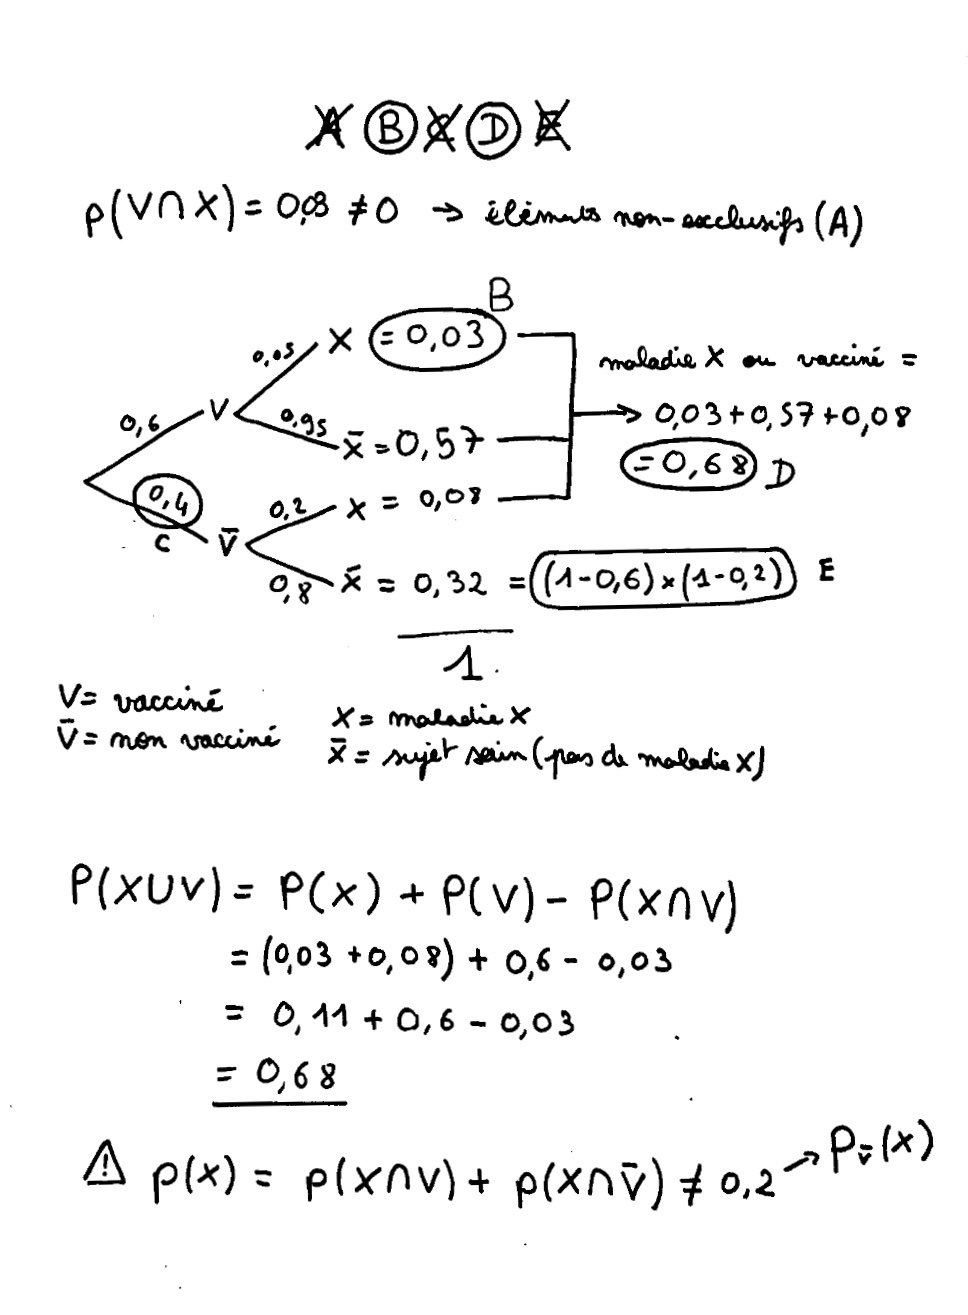 A B C D E
p(V∩X) = 0,03 ≠ 0 → éléments non-exclusifs (A)
B
0,05 X = 0,03
maladie X ou vacciné =
0,6 V 0,95 X̄ = 0,57
→ 0,03+0,57+0,08
= 0,68 D
0,4 0,2 X = 0,08
C V̄
0,8 X̄ = 0,32 = (1-0,6)×(1-0,2) E
1
V = vacciné
V̄ = non vacciné
X = maladie X
X̄ = sujet sain (pas de maladie X)
P(X∪V) = P(X) + P(V) - P(X∩V)
= (0,03 +0,08) + 0,6 - 0,03
= 0,11 + 0,6 - 0,03
= 0,68
⚠ p(x) = p(X∩V) + p(X∩V̄) ≠ 0,2 → P_V̄(X)